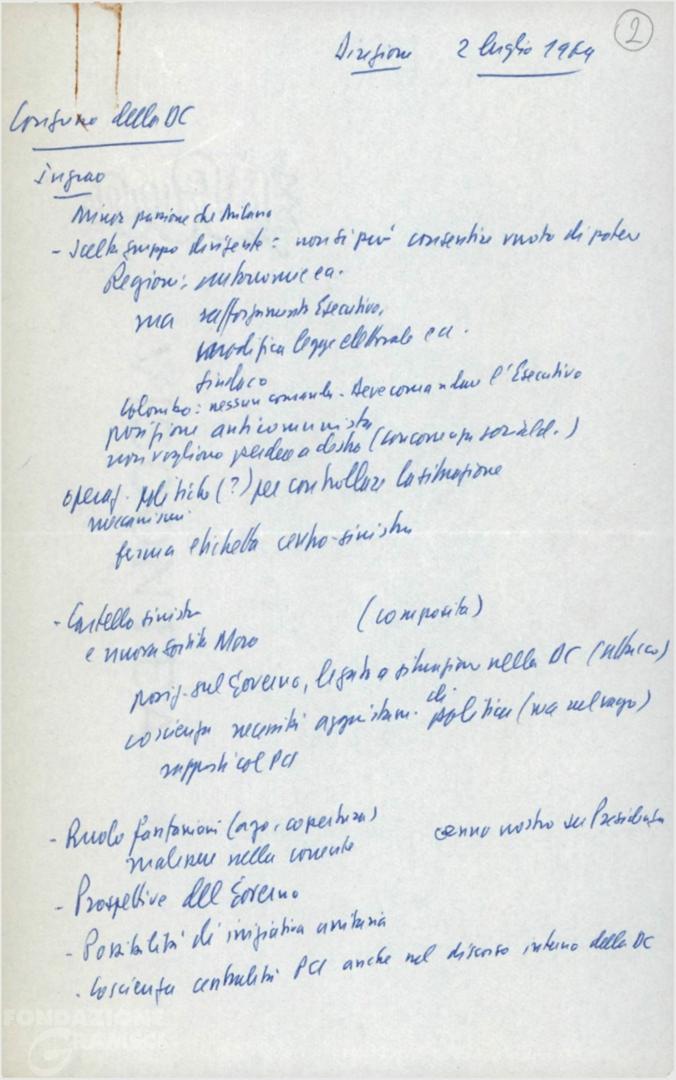 2
Direzione 2 luglio 1969
Congresso della DC
Ingrao
Minor passione che Milano
- Scelta gruppo dirigente: non si può consentire vuoto di potere
Regioni: autonomie ecc.
ma rafforzamento Esecutivo,
modifica legge elettorale ecc.
sindaco
Colombo: nessun comanda. Deve comandare l'Esecutivo
posizione anticomunista
non vogliono perdere a destra (concorrenza sociald.)
operaz. politiche (?) per controllare la situazione
meccanismi
ferma etichetta centro-sinistra
- Cartello sinistra (composita)
e nuova sortita Moro
posiz. sul Governo, legata a situazione nella DC (attacco)
coscienza necessità aggiustam. di politica (ma nel vago)
rapporti col PCI
- Ruolo fanfaniani (ago, copertura) cenno nostro su Presidenza
malessere nella corrente
- Prospettive del Governo
- Possibilità di iniziativa unitaria
- Coscienza centralità PCI anche nel discorso interno della DC
FONDAZIONE
GRAMSCI